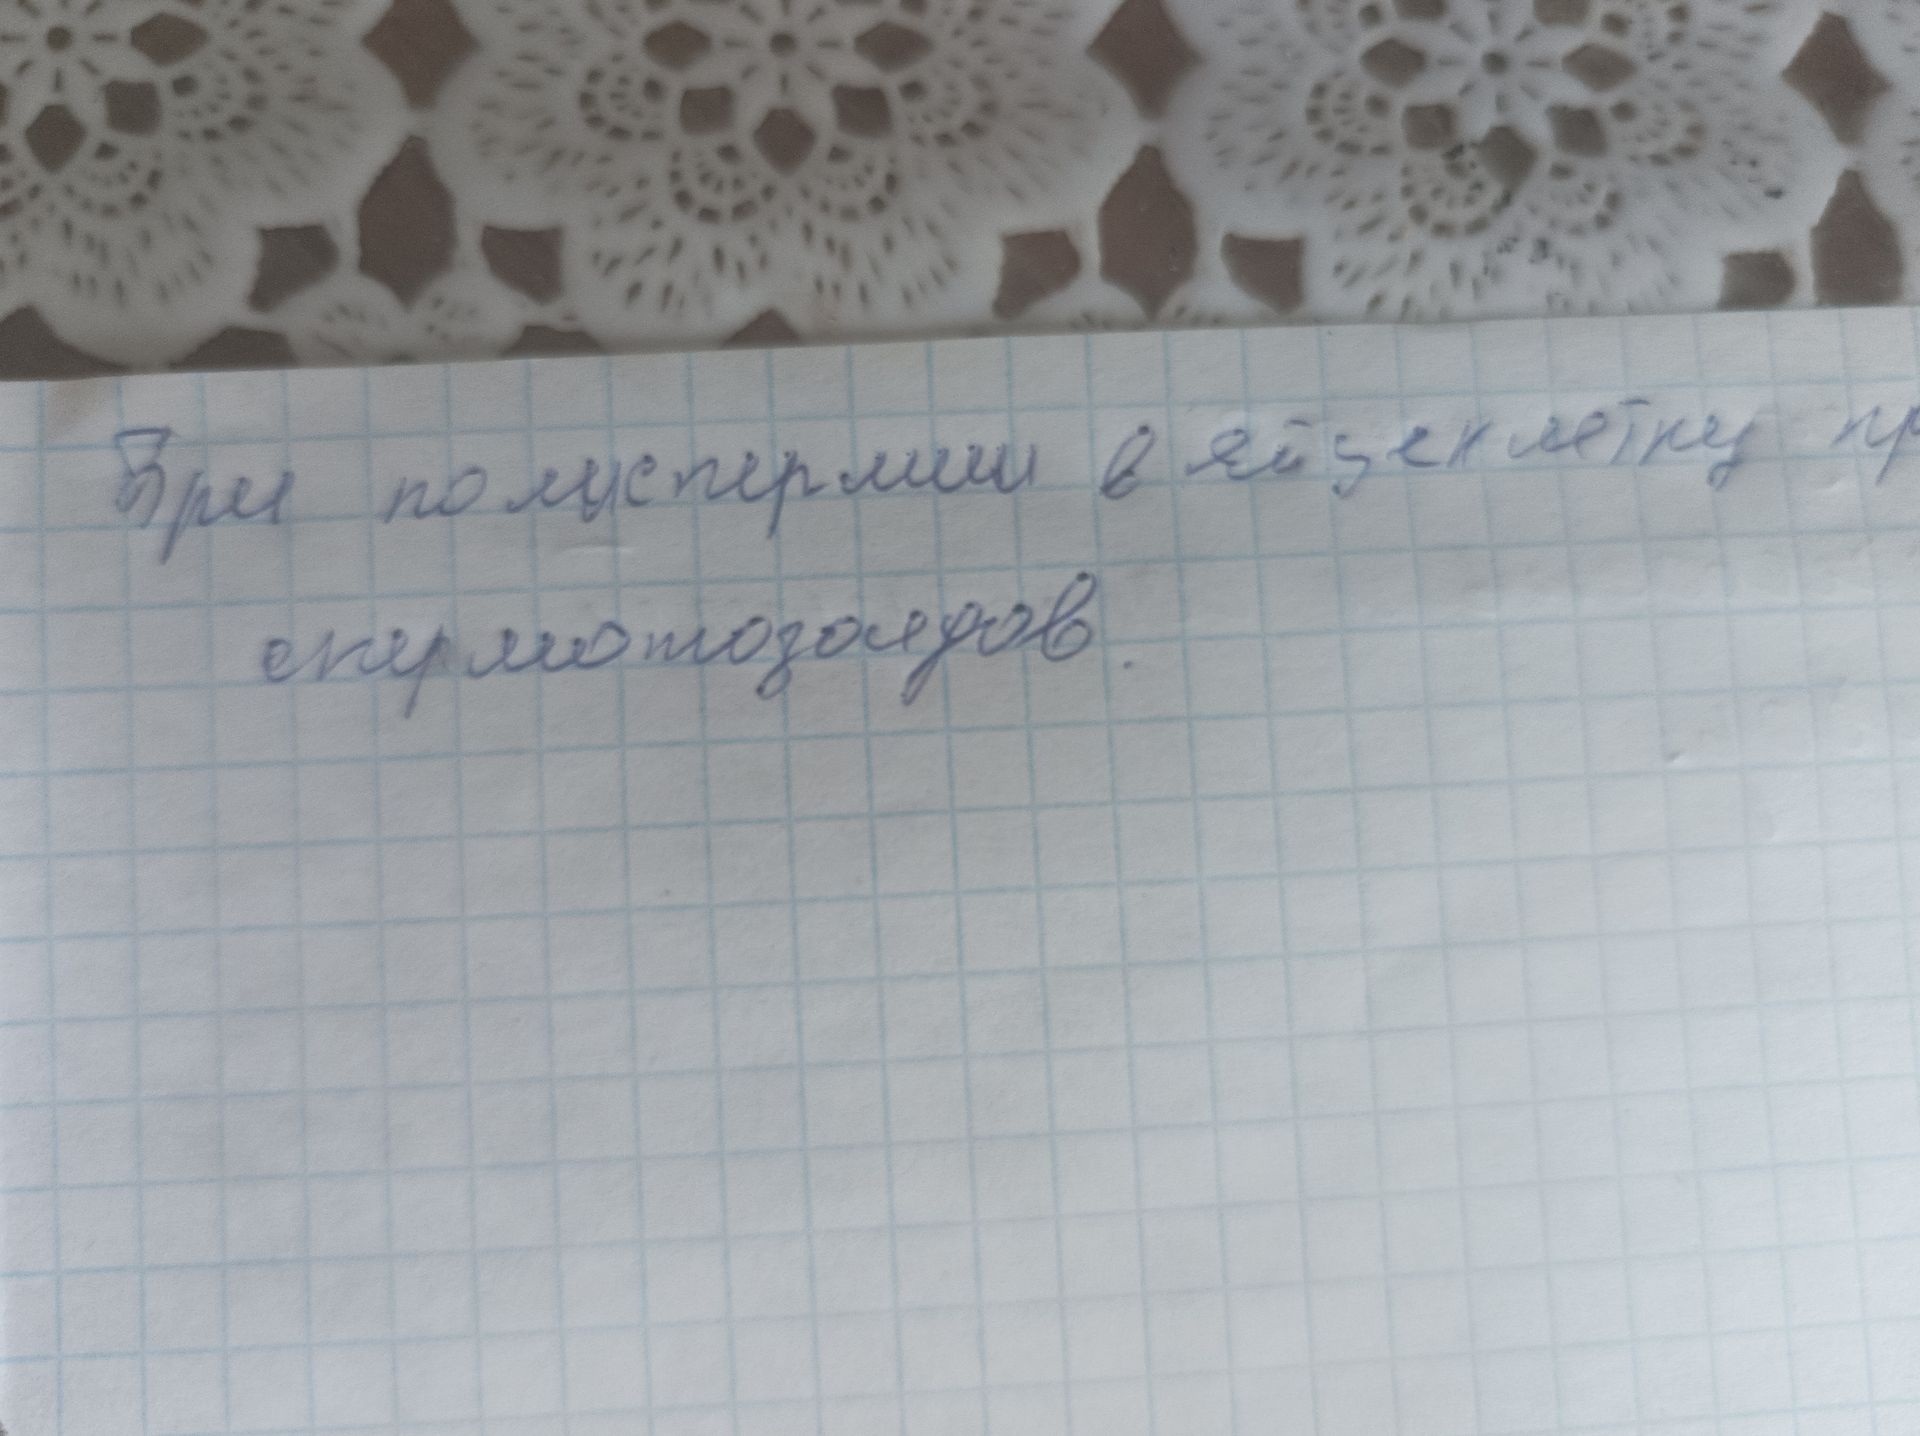 При полуспермии в яйцеклетку пр
спермотозоядов.